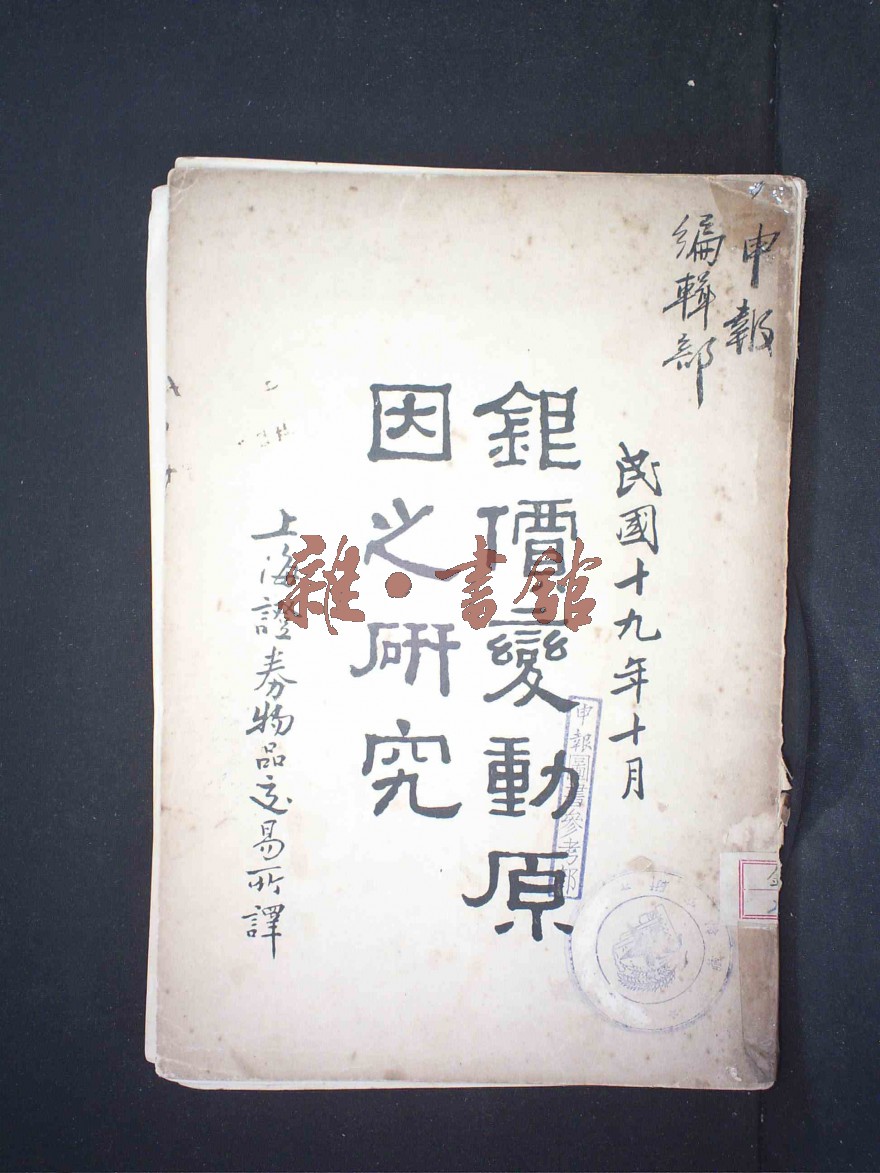 申報
編輯部
民國十九年十月
銀價變動原
因之研究
上海證券物品交易所譯
申報圖書參考部
雜·書館